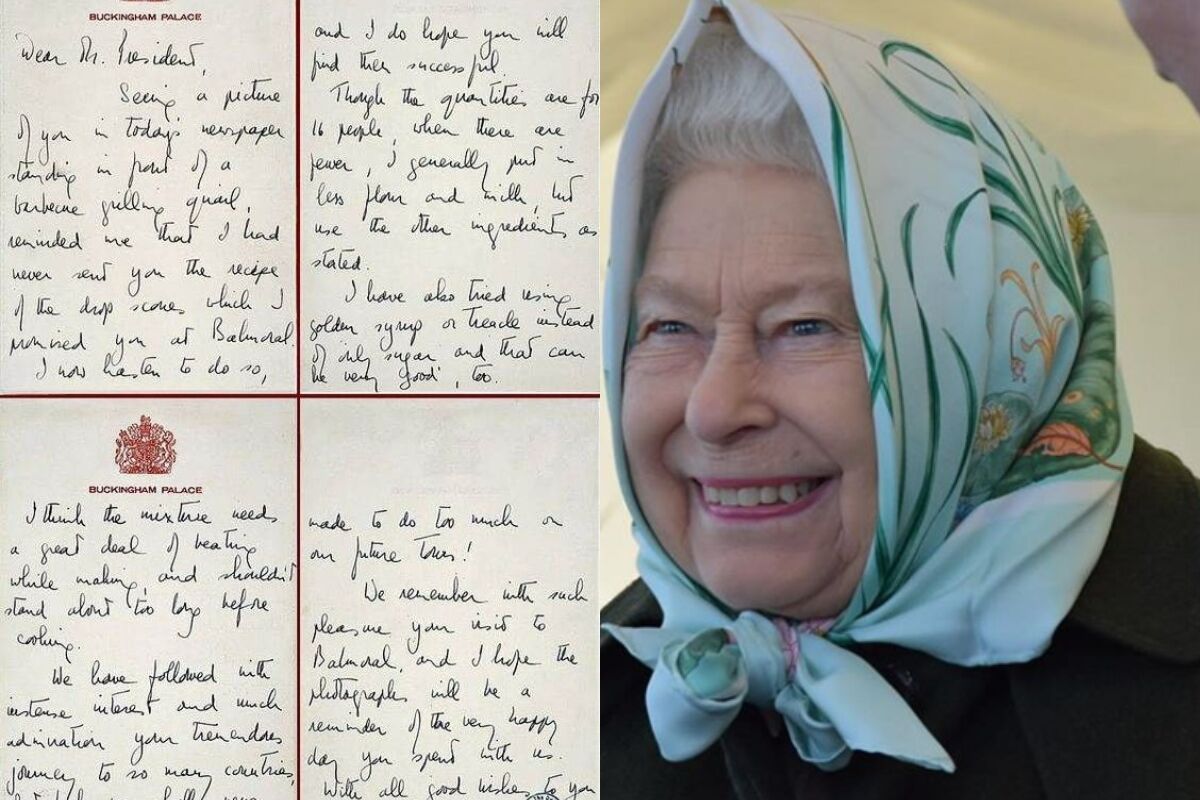 BUCKINGHAM PALACE
Dear Mr. President,
Seeing a picture
of you in today's newspaper
standing in front of a
barbecue grilling quail,
reminded me that I had
never sent you the recipe
of the drop scones which I
promised you at Balmoral.
I now hasten to do so,
and I do hope you will
find them successful.
Though the quantities are for
16 people, when there are
fewer, I generally put in
less flour and milk, but
use the other ingredients as
stated.
I have also tried using
golden syrup or treacle instead
of only sugar and that can
be very good, too.
BUCKINGHAM PALACE
I think the mixture needs
a great deal of beating
while making, and shouldn't
stand about too long before
cooking.
We have followed with
intense interest and much
admiration your tremendous
journey to so many countries,
made to do too much on
our future Tours!
We remember with such
pleasure your visit to
Balmoral, and I hope the
photographs will be a
reminder of the very happy
day you spent with us.
With all good wishes to you